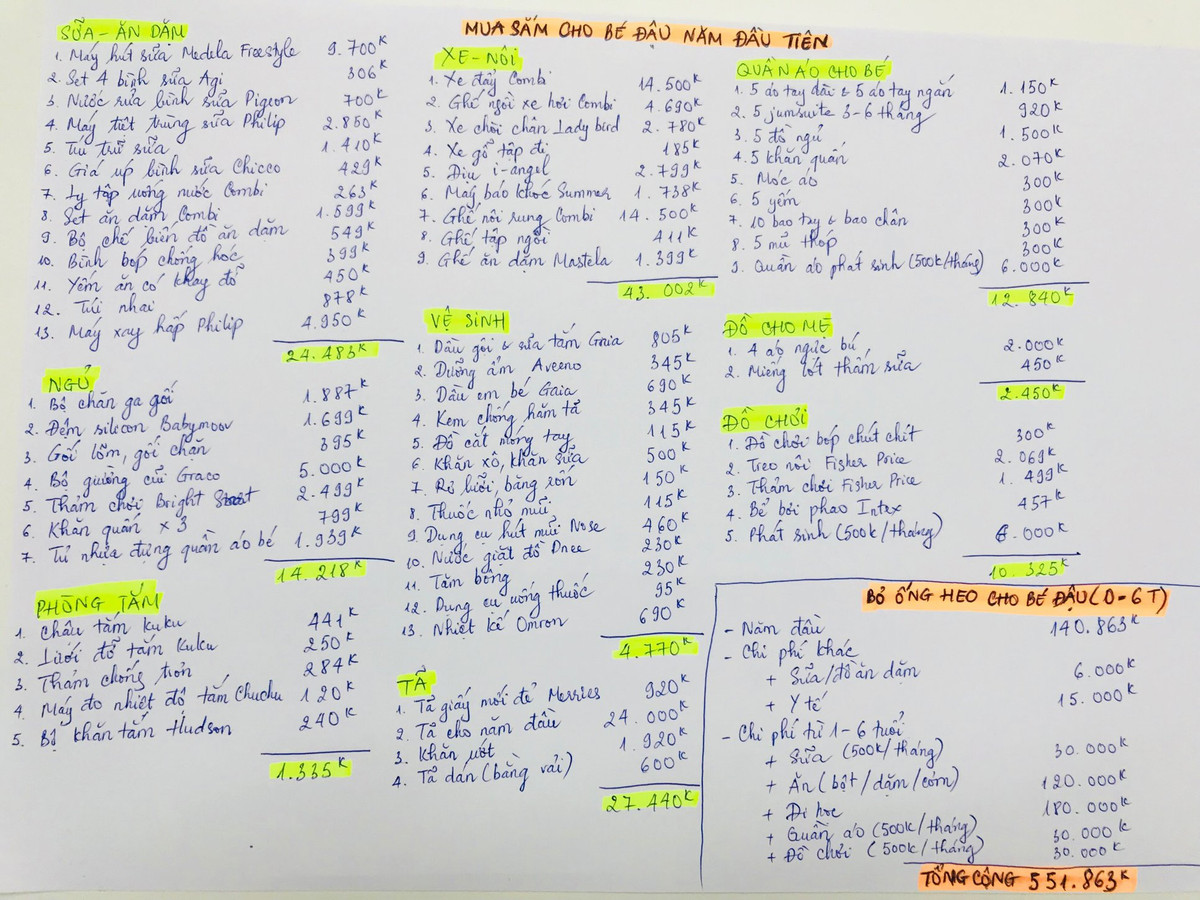 MUA SẮM CHO BÉ ĐẬU NĂM ĐẦU TIÊN
SỮA - ĂN DẶM
1. Máy hút sữa Medela Freestyle 9.700K
2. Set 4 bình sữa Agi 306K
3. Nước rửa bình sữa Pigeon 700K
4. Máy tiệt trùng sữa Philip 2.850K
5. Túi trữ sữa 1.410K
6. Giá úp bình sữa Chicco 429K
7. Ly tập uống nước Combi 263K
8. Set ăn dặm Combi 1.599K
9. Bộ chế biến đồ ăn dặm 549K
10. Bình bóp chống hóc 399K
11. Yếm ăn có khay đổ 450K
12. Túi nhai 878K
13. Máy xay hấp Philip 4.950K
24.483K
NGỦ
1. Bộ chăn ga gối 1.887K
2. Đệm silicon Babymoov 1.699K
3. Gối lõm, gối chặn 395K
4. Bộ giường cũi Graco 5.000K
5. Thảm chơi Bright 2.499K
6. Khăn quấn x 3 799K
7. Tủ nhựa đựng quần áo bé 1.939K
14.218K
PHÒNG TẮM
1. Chậu tắm Kuku 441K
2. Lưới đỡ tắm Kuku 250K
3. Thảm chống trơn 284K
4. Máy đo nhiệt độ tắm Chuchu 120K
5. Bộ khăn tắm Hudson 240K
1.335K
XE - NÔI
1. Xe đẩy Combi 14.500K
2. Ghế ngồi xe hơi Combi 4.690K
3. Xe chòi chân Lady bird 2.780K
4. Xe gỗ tập đi 185K
5. Địu i-angel 2.799K
6. Máy báo khóc Summer 1.738K
7. Ghế nôi rung Combi 14.500K
8. Ghế tập ngồi 411K
9. Ghế ăn dặm Mastela 1.399K
43.002K
VỆ SINH
1. Dầu gội & sữa tắm Gaia 805K
2. Dưỡng ẩm Aveeno 345K
3. Dầu em bé Gaia 690K
4. Kem chống hăm tã 345K
5. Đồ cắt móng tay 115K
6. Khăn xô, khăn sữa 500K
7. Rơ lưỡi, băng rốn 150K
8. Thuốc nhỏ mũi 115K
9. Dụng cụ hút mũi Nose 460K
10. Nước giặt đồ Dnee 230K
11. Tăm bông 230K
12. Dụng cụ uống thuốc 95K
13. Nhiệt kế Omron 690
4.770K
TÃ
1. Tã giấy mới đẻ Merries 920K
2. Tã cho năm đầu 24.000K
3. Khăn ướt 1.920K
4. Tã dán (bằng vải) 600K
27.440K
QUẦN ÁO CHO BÉ
1. 5 áo tay dài & 5 áo tay ngắn 1.150K
2. 5 jumsuite 3-6 tháng 920K
3. 5 đồ ngủ 1.500K
4. 5 khăn quấn 2.070K
5. Móc áo 300K
6. 5 yếm 300K
7. 10 bao tay & bao chân 300K
8. 5 mũ thóp 300K
9. Quần áo phát sinh (500K/tháng) 6.000K
12.840K
ĐỒ CHO MẸ
1. 4 áo ngực bú 2.000K
2. Miếng lót thấm sữa 450K
2.450K
ĐỒ CHƠI
1. Đồ chơi bóp chút chít 300K
2. Treo nôi Fisher Price 2.069K
3. Thảm chơi Fisher Price 1.499K
4. Bể bơi phao Intex 457K
5. Phát sinh (500K/tháng) 6.000K
10.325K
BỎ ỐNG HEO CHO BÉ ĐẬU (0-6T)
- Năm đầu 140.863K
- Chi phí khác
+ Sữa/đồ ăn dặm 6.000K
+ Y tế 15.000K
- Chi phí từ 1-6 tuổi
+ Sữa (500K/tháng) 30.000K
+ Ăn (bột/dặm/cơm) 120.000K
+ Đi học 180.000K
+ Quần áo (500K/tháng) 30.000K
+ Đồ chơi (500K/tháng) 30.000K
TỔNG CỘNG 551.863K